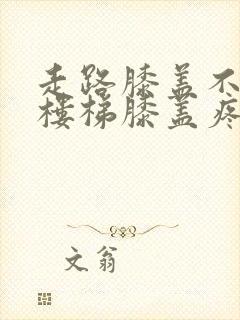 走路膝盖不
楼梯膝盖疼
文翁